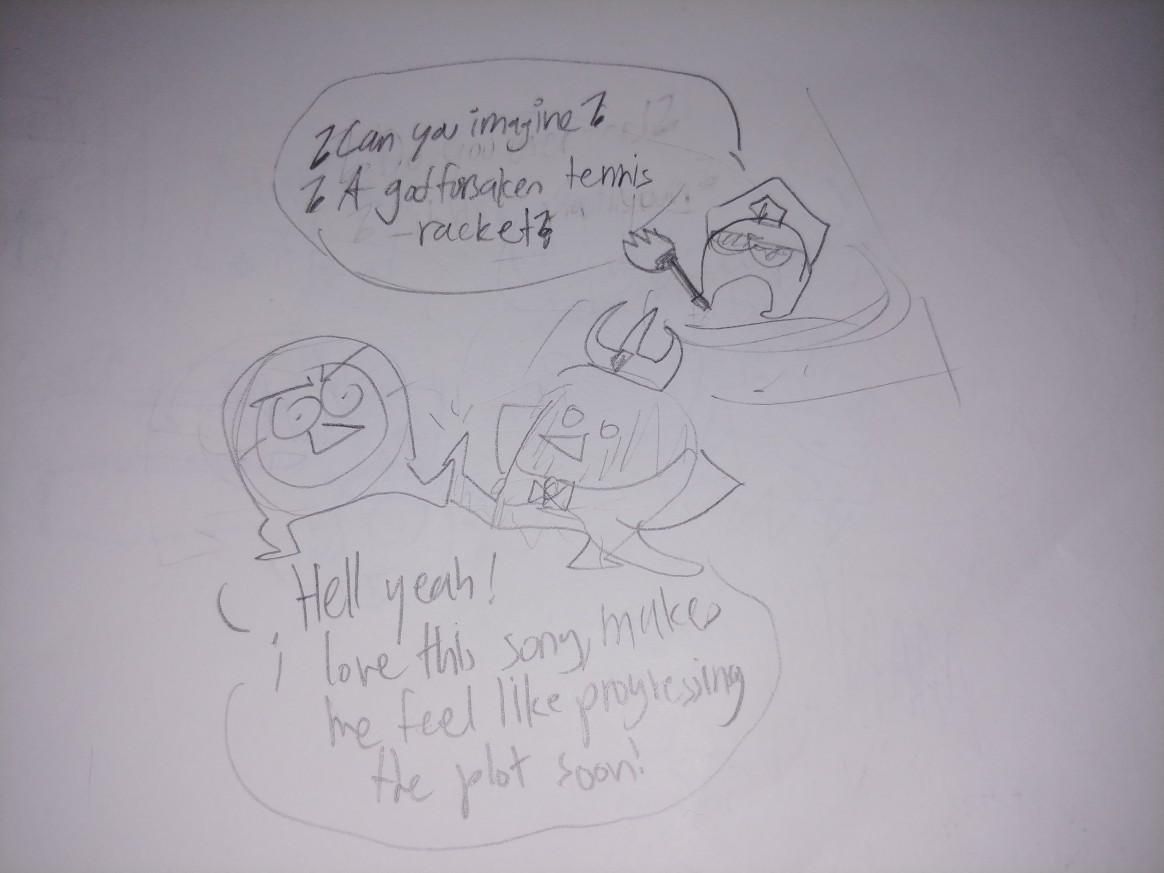 Can you imagine
A godforsaken tennis
racket
Hell yeah!
i love this song, makes
me feel like progressing
the plot soon!